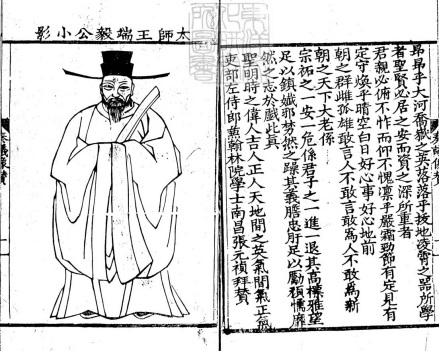 昂昂乎大河喬嶽之英落落乎拔地凌霄之器所學
者聖賢必居之安而資之深所重者
君親必俯不怍而仰不愧凜乎嚴霜勁節有定見有
定守煥乎晴空白日好心事好心地前
朝之群雌孤雄敢言人不敢言敢為人不敢為新
朝之天下大老係
宗祏之一安一危係君子之一進一退其高標雅望
足以鎮孅邪勃然之躁其義膽忠肝足以勵頑懦靡
然之志於戲此真
聖明時之偉人吉人正人天地間之英氣間氣正氣
吏部左侍郎兼翰林院學士南昌張元禎拜贊
太師王端毅公小影